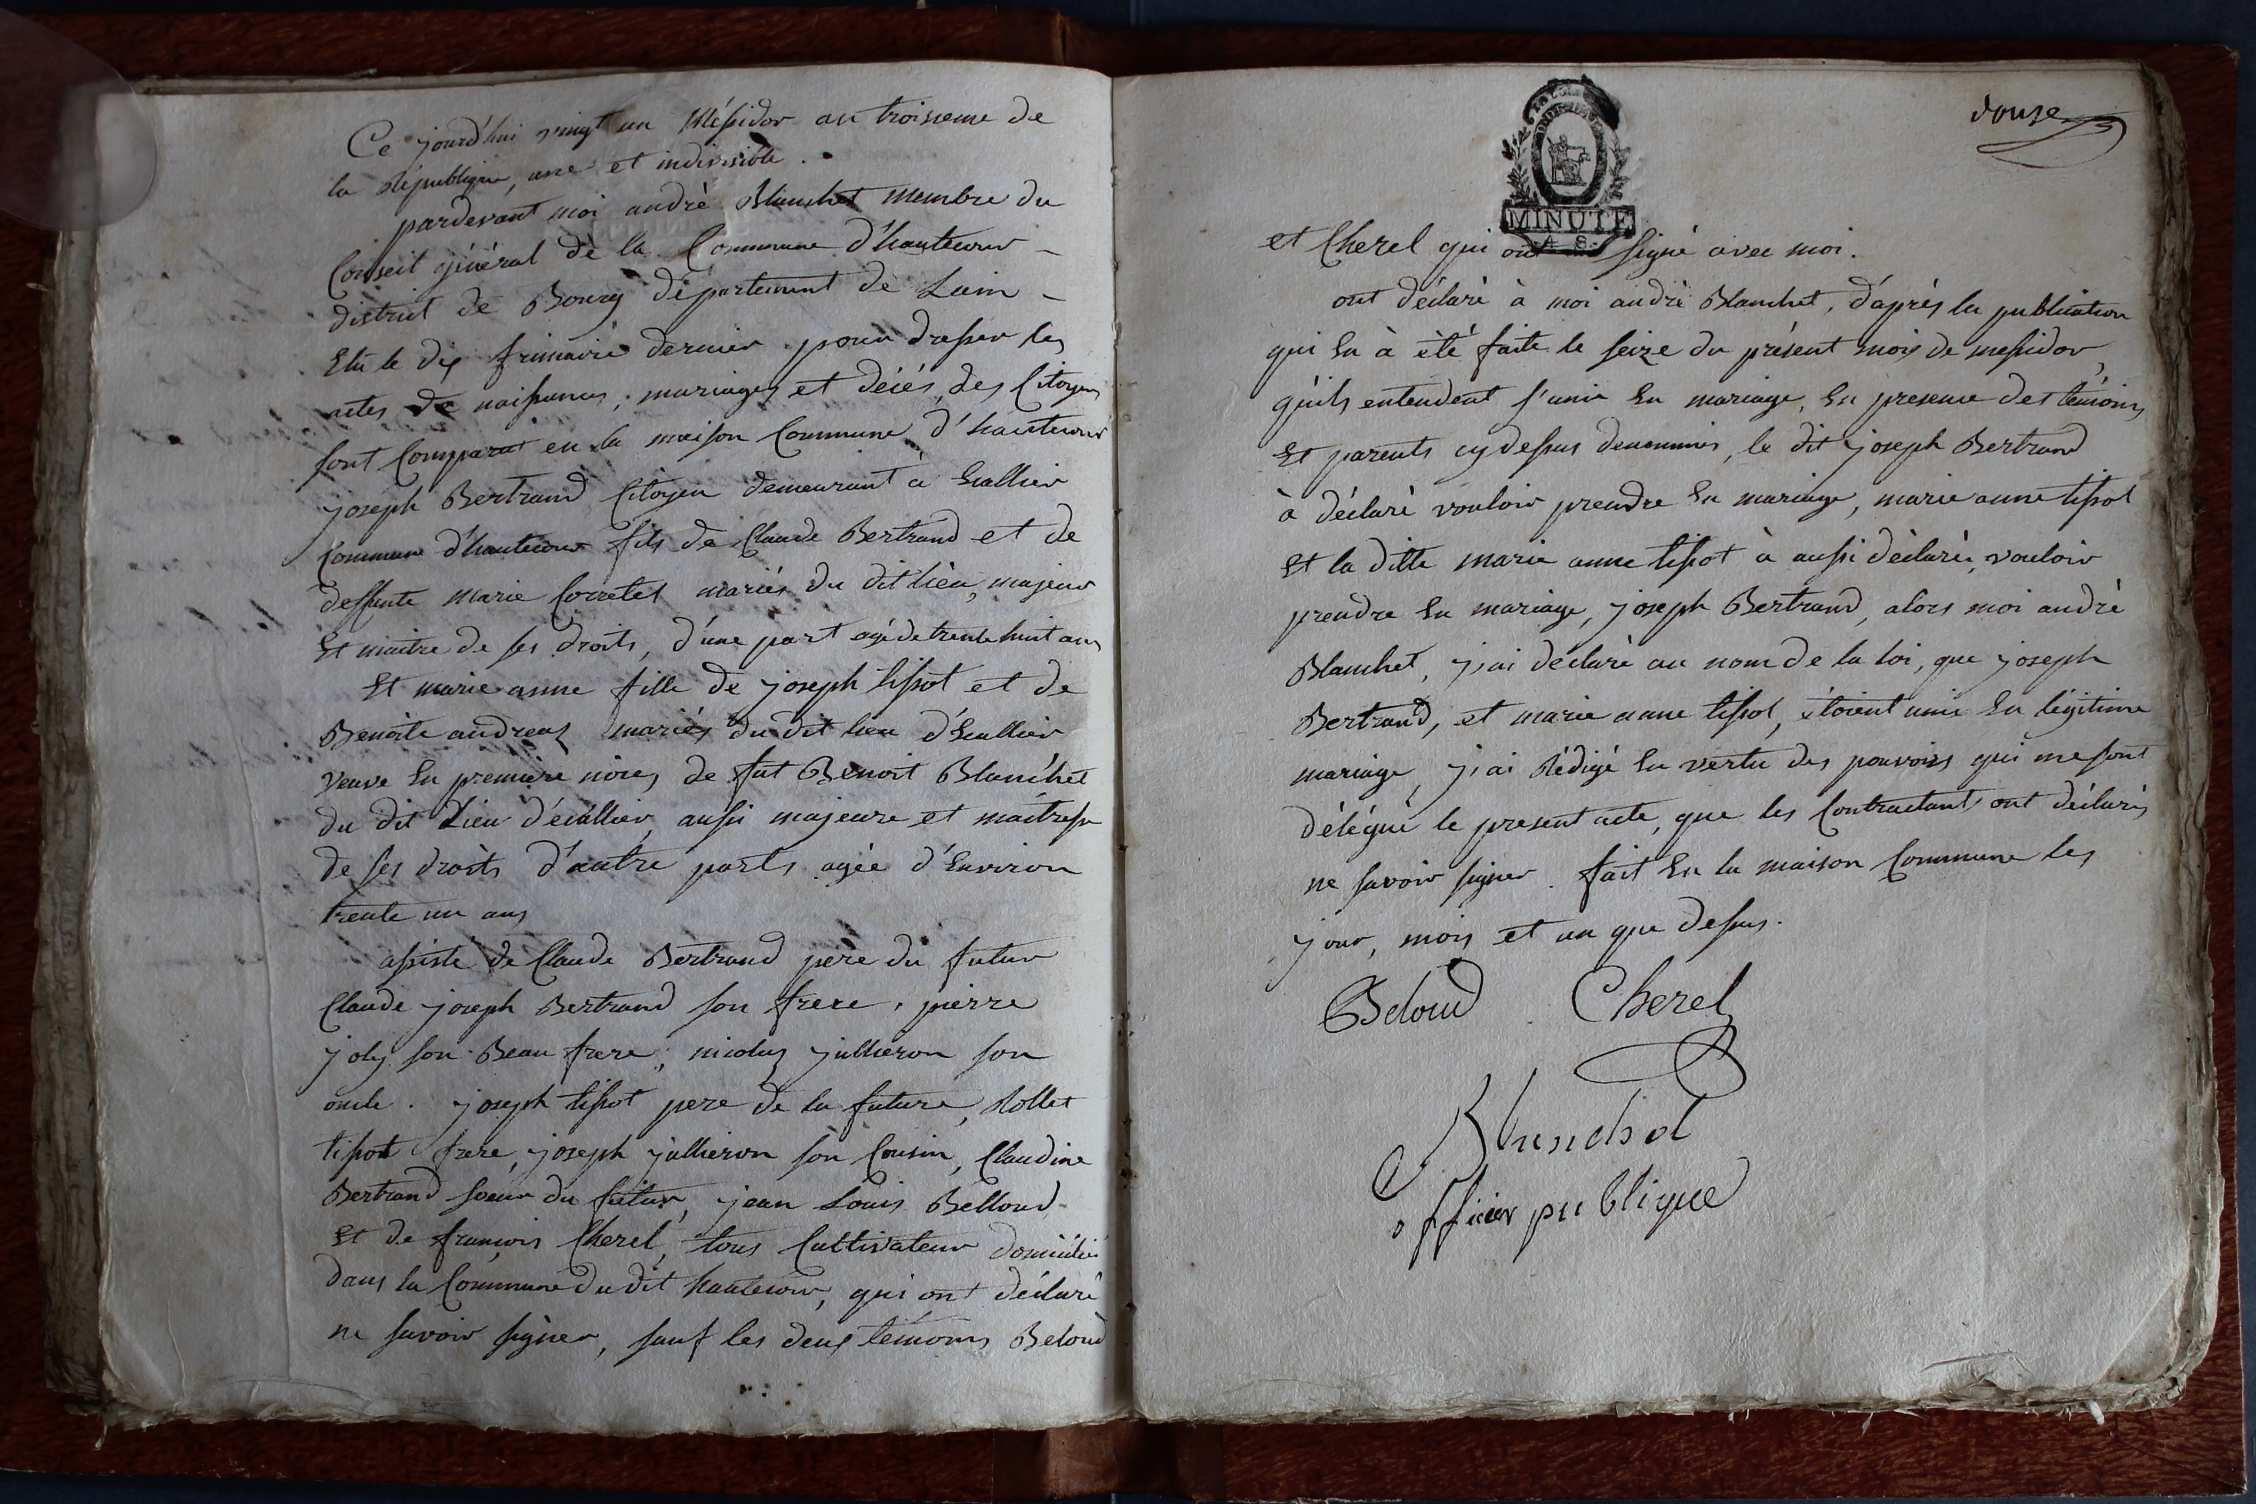 Ce jourd'hui vingt un Méssidor an troisieme de
la République, une et indivisible.
pardevant moi andrè Blanchet membre du
Conseil général de la Commune d'hautecour
district de Bourg département de Lain
Elu le dix frimaire dernier pour dresser les
actes de naissances, mariages et décés, des Citoyens
sont Comparut en la maison Commune d'hautecour
joseph Bertrand Citoyen demeurant à
Commune d'hautecour fils de Claude Bertrand et de
deffunte marie mariés du dit lieu, majeur
Et maitre de ses droits, d'une part agé de trente huit ans
Et marie anne fille de joseph tissot et de
Benoite andreaz mariés du dit lieu
veuve En première nôces de fut Benoit Blanchet
du dit Lieu aussi majeure et maitresse
de ses droits d'autre parts agée d'Environ
trente un ans
assisté de Claude Bertrand pere du futur
Claude joseph Bertrand son frere, pierre
joly son Beau frere, nicolas jullieron son
oncle. joseph tissot pere de la future, Rollet
tissot frere, joseph jullieron son Cousin, Claudine
Bertrand soeur du futur, jean Louis Belloud
Et de françois Cherel, tous Cultivateur domicilié
dans la Commune du dit hautecour, qui ont déclaré
ne savoir signer, sauf les deux temoins Beloud
douse
MINUTE
4 S.
et Cherel qui ont signé avec moi.
ont déclaré à moi andrè Blanchet, d'après la publication
qui En à été faite le seize du présent mois de messidor,
qu'ils entendent s'unir En mariage, En presence des témoins
Et parents cy dessus denommés, le dit joseph Bertrand
à déclaré vouloir prendre En mariage, marie anne tissot
Et la ditte marie anne tissot à aussi déclaré, vouloir
prendre En mariage, joseph Bertrand, alors moi andrè
Blanchet, j'ai déclaré au nom de la loi, que joseph
Bertrand, et marie anne tissot, étoient unis En légitime
mariage, j'ai Rédigé En vertu des pouvoirs qui me sont
délégué le present acte, que les Contractants ont déclarés
ne savoir signer. fait En la maison Commune les
jour, mois et an que dessus.
Beloud Cherel
Blanchet
officier publique